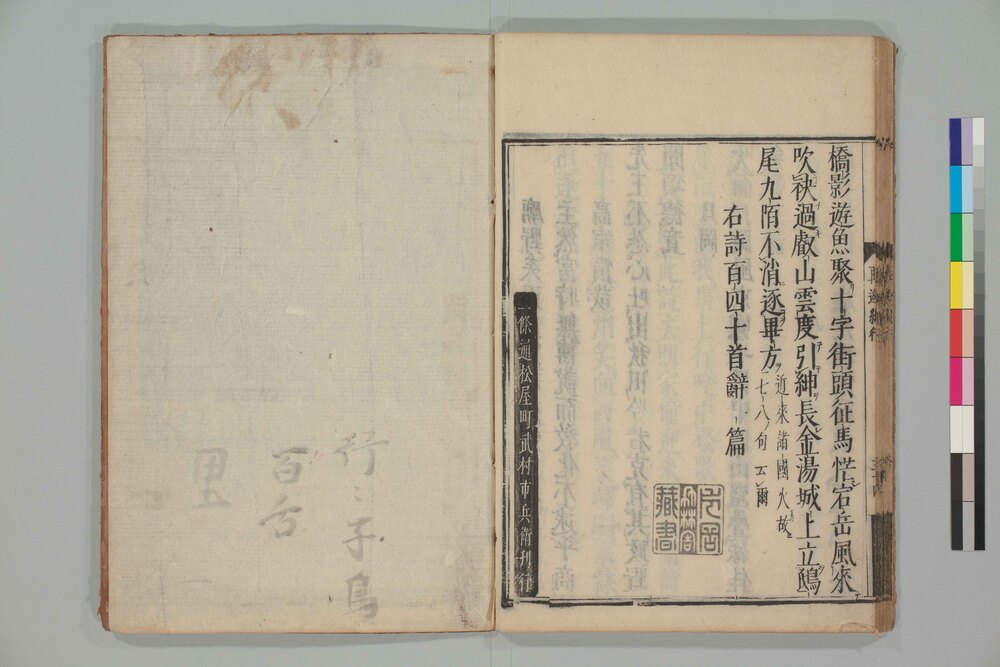 橋影遊魚聚十字街頭征馬恾宕岳風來
吹袂過叡山雲度引紳長金湯城上立鴟
尾九陌不消逐畢方
近來諸國火故
七八句云爾
右詩百四十首辭一篇
二條通松屋町武村市兵衛刊行
藏書
行々子鳥
百舌
里